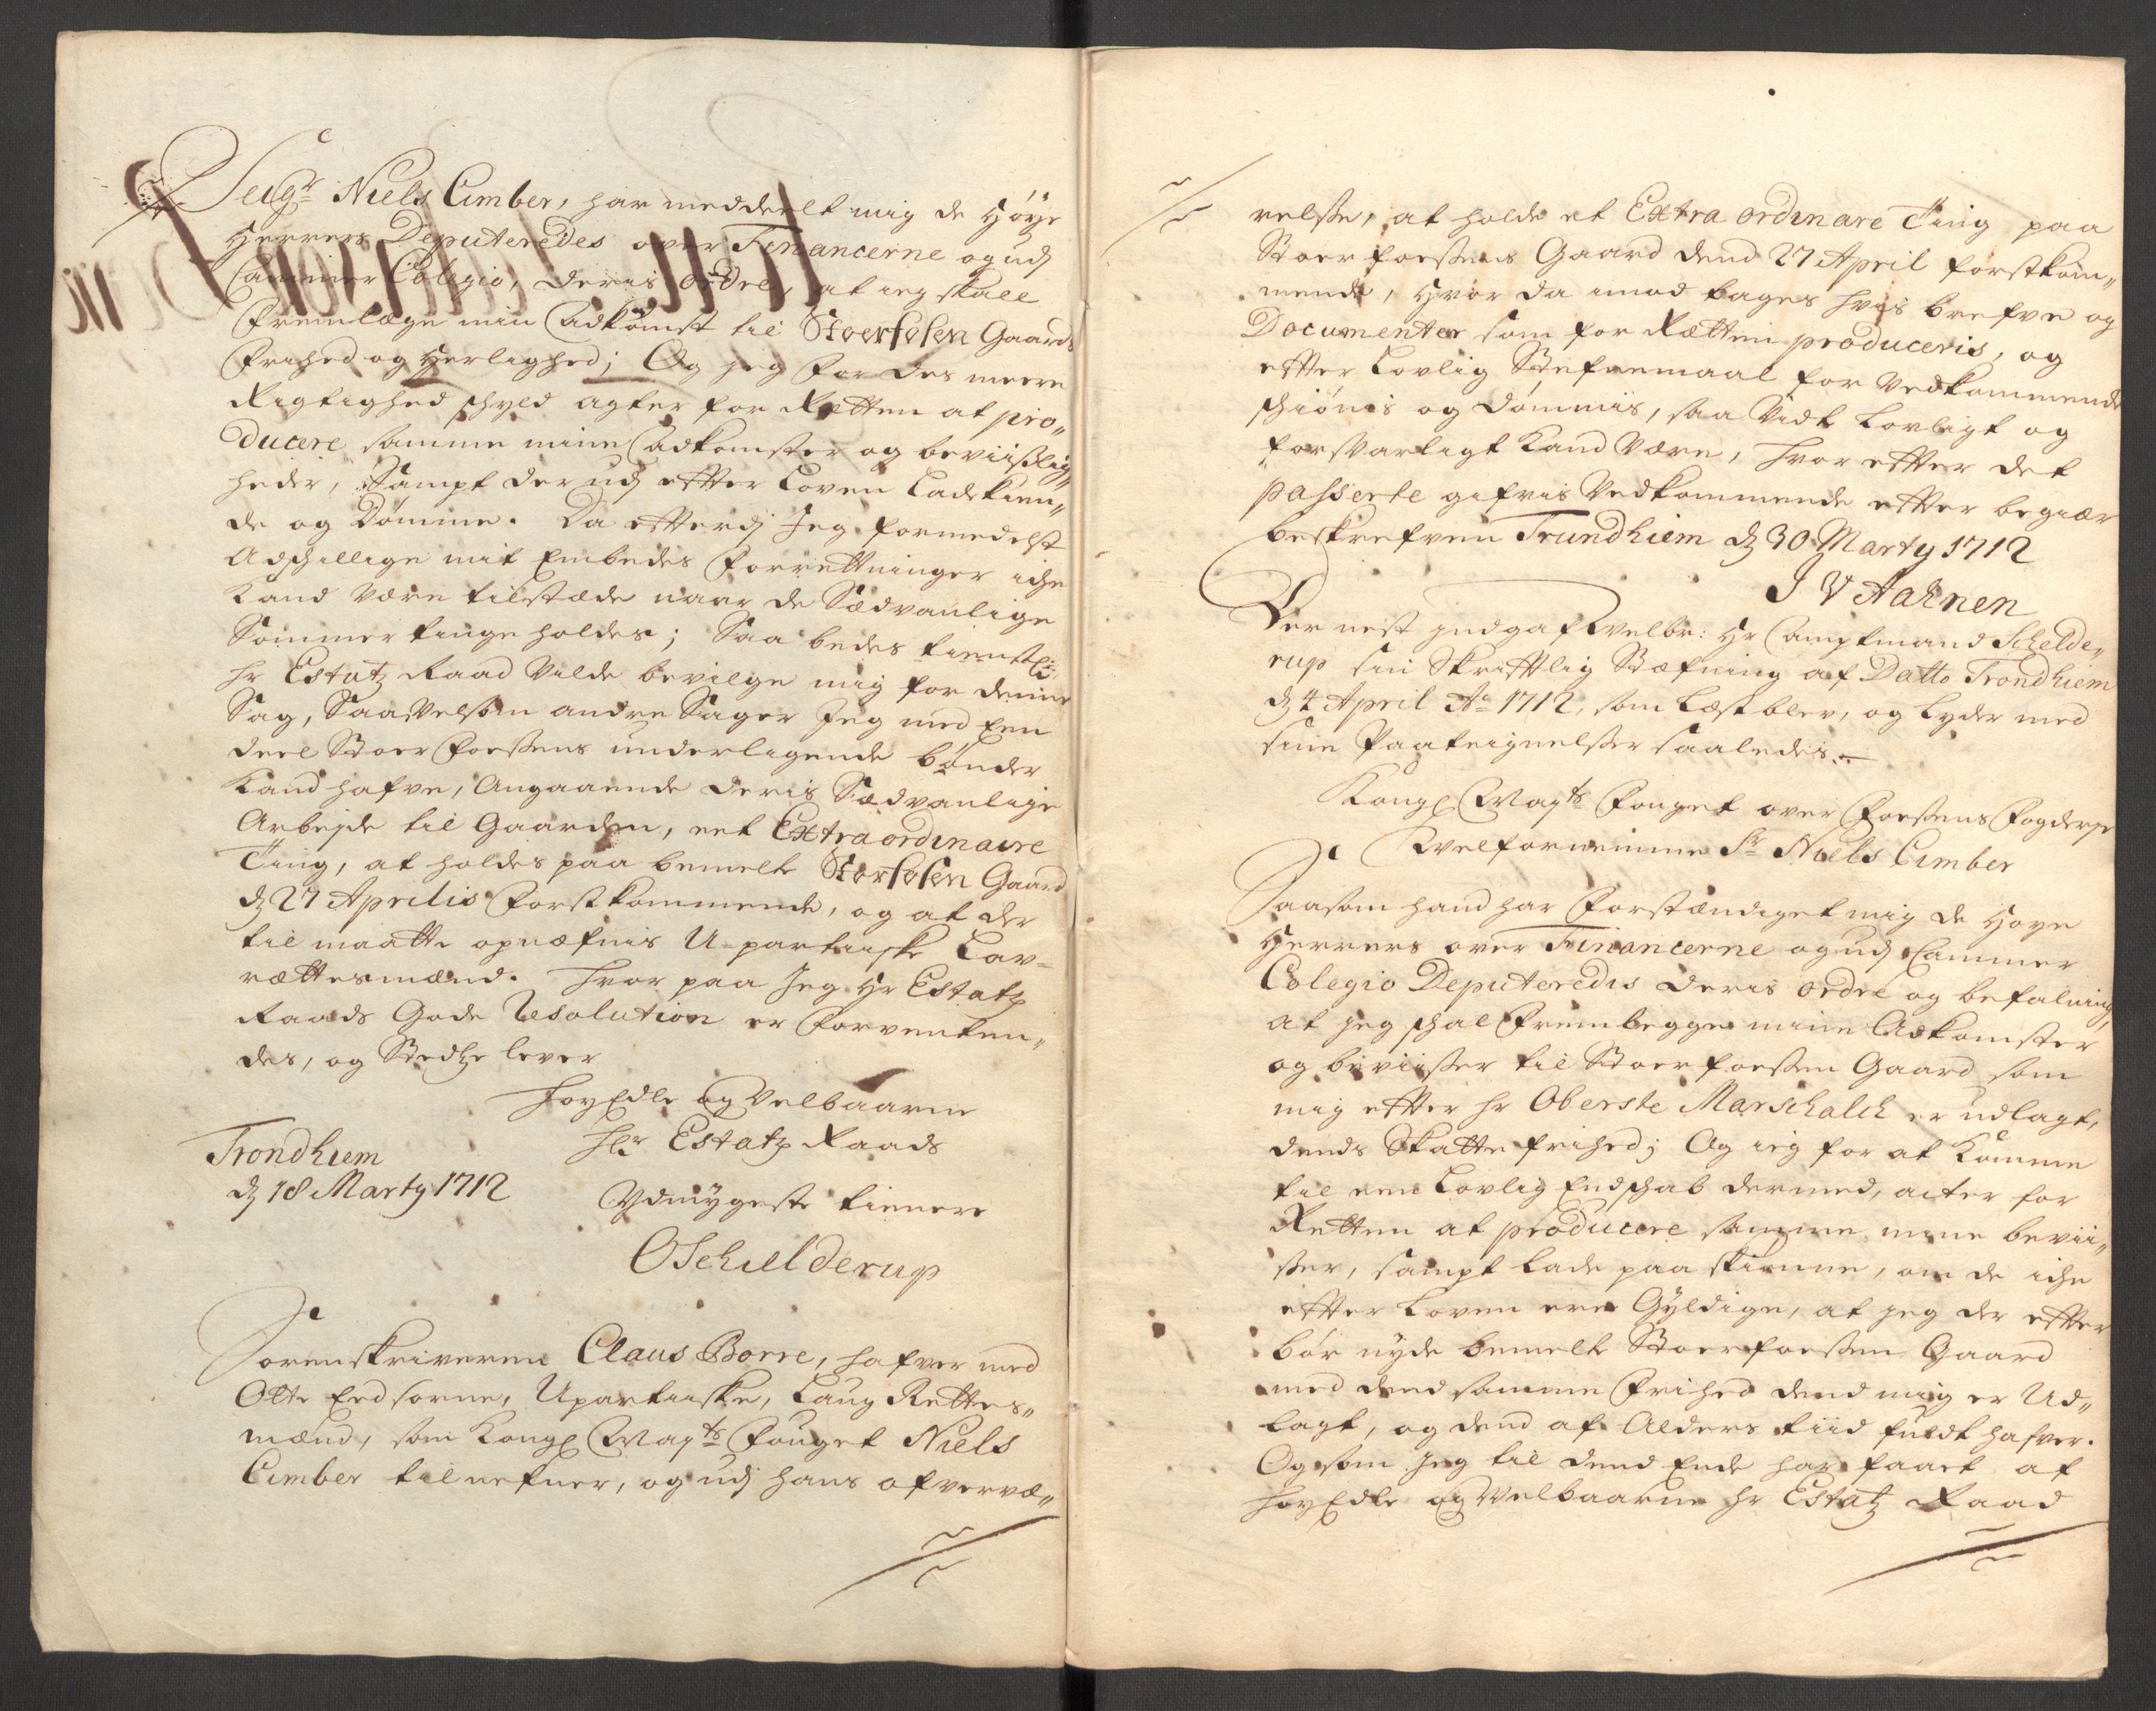 Seigr Niels Cimber, har meddeelt mig de Høye
Herrers Deputeredes over Financerne og udj
Cammer Colegio, deris ordre, at ieg skall
Fremlæge min Adkomst til Stoerfosen Gaards
Frihed og Herlighed; Og jeg for des meere
Rigtighed schyld agter for Retten at pro„
ducere samme mine Adkomster og beviislig„
heder, Sampt der udj effter Loven Lade kien„
de og Dømme. Da efterdj Jeg formedelst
Adschillige mit Embedes Forrettninger iche
Kand være tilstæde naar de Sædvanlige
Sommer tinge holdes; Saa bedes tienstl:
Hr Estatz Raad Vilde bevilge mig for denne
Sag, Saavelsom andre Sager Jeg med Een
deel Stoer Foessens underligende bønder
Kand hafve, Angaaende deris Sædvanlige
Arbejde til Gaarden, eet Extraordinaire
Ting, at holdes paa bemelte Storfosen Gaard
d 27 Aprilis Førstkommende, og at der
til maatte opnæfnis U-partiske Lav-
rættesmænd. Hvor paa Jeg Hr Estatz
Raads Gode Resolution er Forventen„
des, og Stedtze lever
HøyEdle og Velbaarne
Hr Estatz Raads
Trondhiem
d 18 Marty 1712
Ydmygeste tienere
OSchielderup
Sorenskriveren Claus Borre, hafver med
Otte Eedsorne, Upartiske, Laug Rettes„
mænd, som Kongl Mayts Fouget Niels
Cimber tilnefner, og udj hans ofververæ„
relsse, at holde et Extra ordinare Ting paa
Stoerfoessens Gaard dend 27 April førstkom„
mende, Hvor da imod tages hvis brefve og
Documenter som for Rætten produceris, og
effter Lovlig Stefnemaal for Vedkommende
schiønis og dømmis, saa Vidt Lovligt og
forsvarligt Kand være, hvor effter det
passerte gifvis Vedkommende effter begiær
beskrefven Trundhiem d 30 Marty 1712
J V Aahnen
Der nest indgaf Welbr: Hr Camptmand Schelde„
rup sin Skrifftlig Stæfning af Datto Trondhiem
d 4 April Ao 1712, som Læst blev, og Lyder med
sine Paateignelsser saaledes.
Kongl Mayts Fouget over Foessens Fogderje
Welfornemme Sr Niels Cimber
Saasom hand har Forstændiget mig de Høye
Herrers over Financerne og udj Cammer
Colegio Deputeredis deris ordre og befalning,
at jeg schal Frembegge mine Adkomster
og beviisser til Stoerfoessen Gaard som
mig effter Hr Oberste Marschalck er udlagt,
dends Skatte frihed; Og ieg for at Komme
til een Lovlig Endschab dermed, acter for
Retten at producere samme mine bevii„
sser, sampt lade paa skiønne, om de iche
effter Loven ere Gyldige, at jeg der effter
bør nyde bemelte Stoerfoessen Gaard
med dend samme Frihed dend mig er Ud„
lagt, og dend af Alders tiid fuldt hafver.
Og som Jeg til dend Ende har faaet af
HøyEdle og Welbaarne Hr Estatz Raad